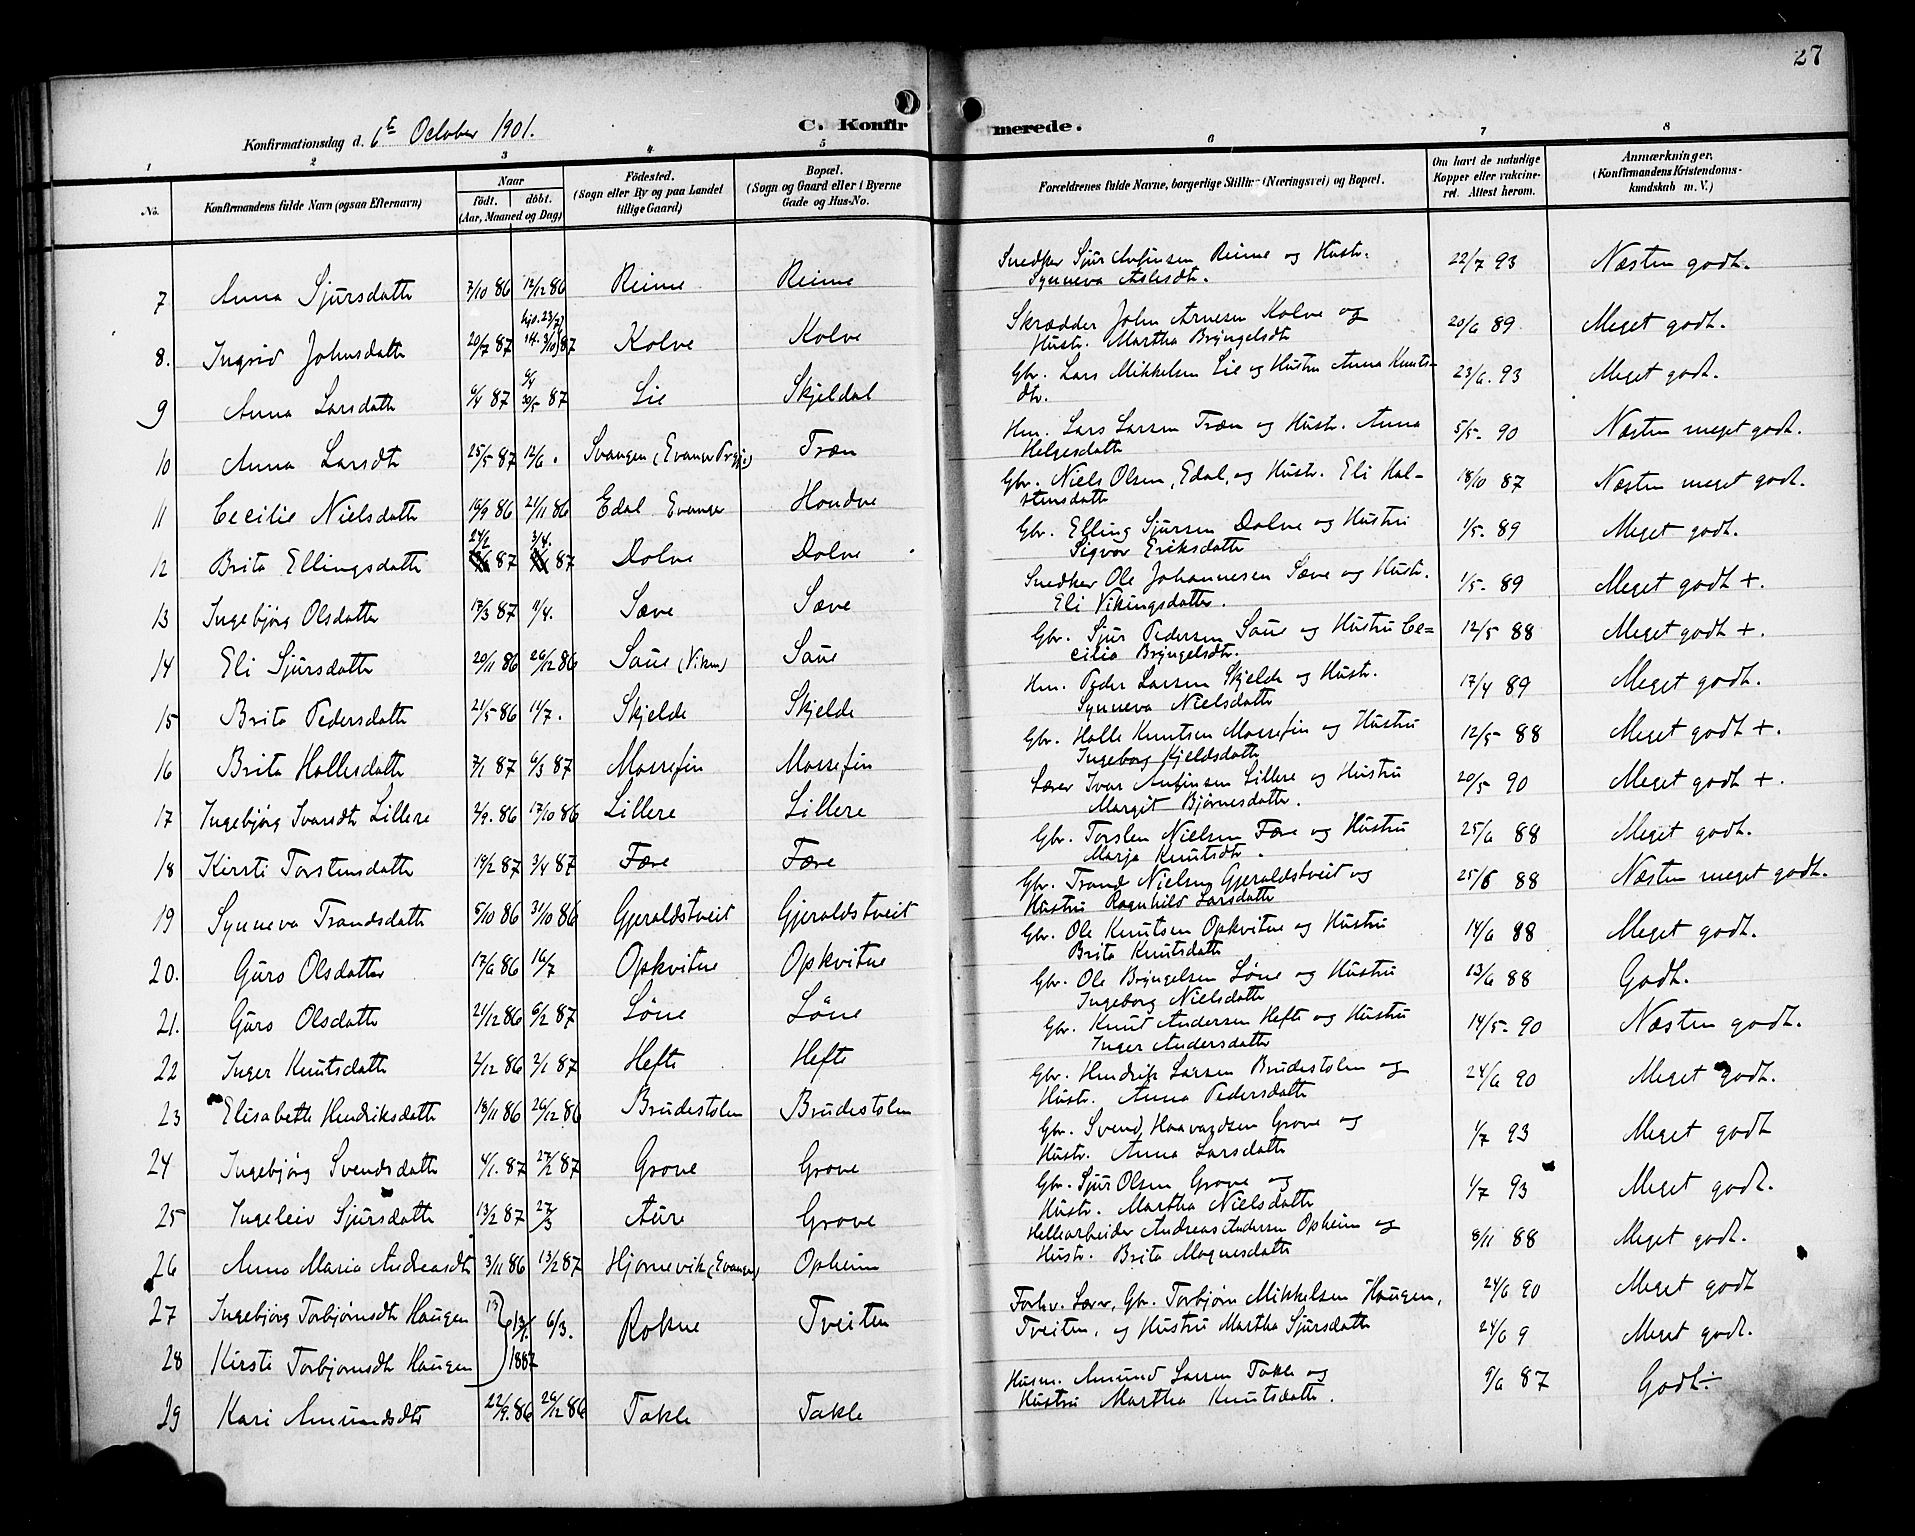 27
Konfirmationsdag d. 6te October 1901.
C. Konfirmerede.
1 2 3 4 5 6 7 8
No.
Konfirmandens fulde Navn (ogsaa Efternavn)
Naar
født. døbt.
(Aar, Maaned og Dag)
Fødested.
(Sogn eller By og paa Landet
tillige Gaard)
Bopæl.
(Sogn og Gaard eller i Byerne
Gade og Hus-No.
Forældrenes fulde Navne, borgerlige Stilling (Næringsvei) og Bopæl.
Om havt de naturlige
Kopper eller vakcine-
ret. Attest herom.
Anmærkninger.
(Konfirmandens Kristendoms-
kundskab m. V.)
7 Anna Sjursdatter 7/10 86 12/12 86 Reime Reime Snedker Sjur Anfinsen Reime og Hustr. 22/7 93 Næsten godt.
Synneva Aslesdt.
8. Ingrid Johnsdatter 20/7 87 hjd. 23/7 3/10 87 Kolve Kolve Skrædder John Arnesen Kolve og 20/6 89. Meget godt.
Hustr. Martha Bryngelsdt
9 Anna Larsdatter 9/4 87 30/5 87 Lie Skjeldal Gbr. Lars Mikkelsen Lie og Hustru Anna Knuts- 23/6. 93 Meget godt.
dtr.
10 Anna Larsdtr 25/5 87 12/6. Svangen (Evanger Prgj.) Træn Hm. Lars Larsen Træn og Hustr. Anna 5/5- 90 Næsten meget godt.
Helgesdatter
11 Cecilie Nielsdatter 19/9 86 21/11 86 Edal Evanger Hondve Gbr. Niels Olsen, Edal, og Hustr. Eli Hal- 18/10 87 Næsten meget godt.
stensdatter
12 Brita Ellingsdatter 24/2 87 3/4. 87 Dolve Dolve Gbr. Elling Sjursen Dolve og Hustru 1/5- 89 Meget godt.
Sigvor Eriksdatter
13 Ingebjørg Olsdatter 17/3 87 11/4. Sæve Sæve Snedker Ole Johannesen Sæve og Hustr. 1/5- 89 Meget godt +.
Eli Vikingsdatter.
14 Eli Sjursdatter 20/11 86 26/12 86 Saue (Viken) Saue Gbr. Sjur Pedersen Saue og Hustru Ce= 12/5 88 Meget godt +.
cilia Bryngelsdtr.
15 Brita Pedersdatter 21/5 86 11/7. Skjelde Skjelde Hm. Peder Larsen Skjelde og Hustr. 17/4 89 Meget godt.
Synneva Nielsdatter
16 Brita Hallesdatter 7/1 87 6/3 87 Mossefin Mossefin Gbr. Halle Knutsen Mossefin og Hustru 12/5 88 Meget godt +.
Ingeborg Kjeldsdatter
17 Ingebjørg Ivarsdtr Lillere 2/9. 86 17/10 86 Lillere Lillere Lærer Ivar Anfinsen Lillere og Hustru 20/5 90 Meget godt +.
Margit Bjørnesdatter.
18 Kirsti Torstensdatter 19/2 87 3/4 87 Fære Fære Gbr. Torsten Nielsen Fære og Hustru 25/6 88 Meget godt.
Marja Knutsdtr.
19 Synneva Trondsdatter 5/10 86 31/10 86 Gjeraldstveit Gjeraldstveit Gbr. Trond Nielsen Gjeraldstveit og 25/6 88 Næsten meget godt.
Hustru Ragnhild Larsdatter
20. Guro Olsdatter 17/6 86 16/7 Opkvitne Opkvitne Gbr. Ole Knutsen Opkvitne og Hustru 14/6 88 Meget godt.
Brita Knutsdatter
21. Guro Olsdatter 21/12 86 6/2 87 Løne Løne Gbr. Ole Bryngelsen Løne og Hustru 13/6 88 Godt.
Ingeborg Nielsdatter
22 Inger Knutsdatter 2/12 86 2/1 87 Hefte Hefte Gbr. Knut Andersen Hefte og Hustru 14/5- 90 Næsten godt.
Inger Andersdatter
23 Elisabeth Hendriksdatter 13/11 86 26/12 86 Brudestolen Brudestolen Gbr. Hendrik Larsen Brudestolen og 24/6 90 Meget godt.
Hustr. Anna Pedersdatter
24 Ingebjørg Svendsdatter 4/1. 87 27/2 87 Grove Grove Gbr. Svend Haavardsen Grove og 1/7 93 Meget godt
Hustr. Anna Larsdatter
25 Ingeleiv Sjursdatter 13/2 87 27/3 Aure Grove Gbr. Sjur Olsen Grove og 1/7 93 Meget godt.
Hustr. Martha Nielsdatter
26 Anna Maria Andreasdtr 3/11 86 13/2 87 Hjørnevik (Evanger) Opheim Hellearbeider Andreas Andersen Opheim og 8/11 88 Meget godt.
Hustr. Brita Magnesdatter
27 Ingebjørg Torbjørnsdt Haugen 13/1. 1887 6/3. Rokne Tveiten Forhv. Lærer, Gbr. Torbjørn Mikkelsen Haugen, 24/6 90 Meget godt
Tveiten, og Hustru Martha Sjursdatter
28 Kirsti Torbjørnsdt Haugen 24/6 9 Meget godt.
29 Kari Amundsdtr 22/9. 86 26/12 86 Takle Takle Husm. Amund Larsen Takle og 9/6 87 Godt÷
Hustru Martha Knutsdatter.